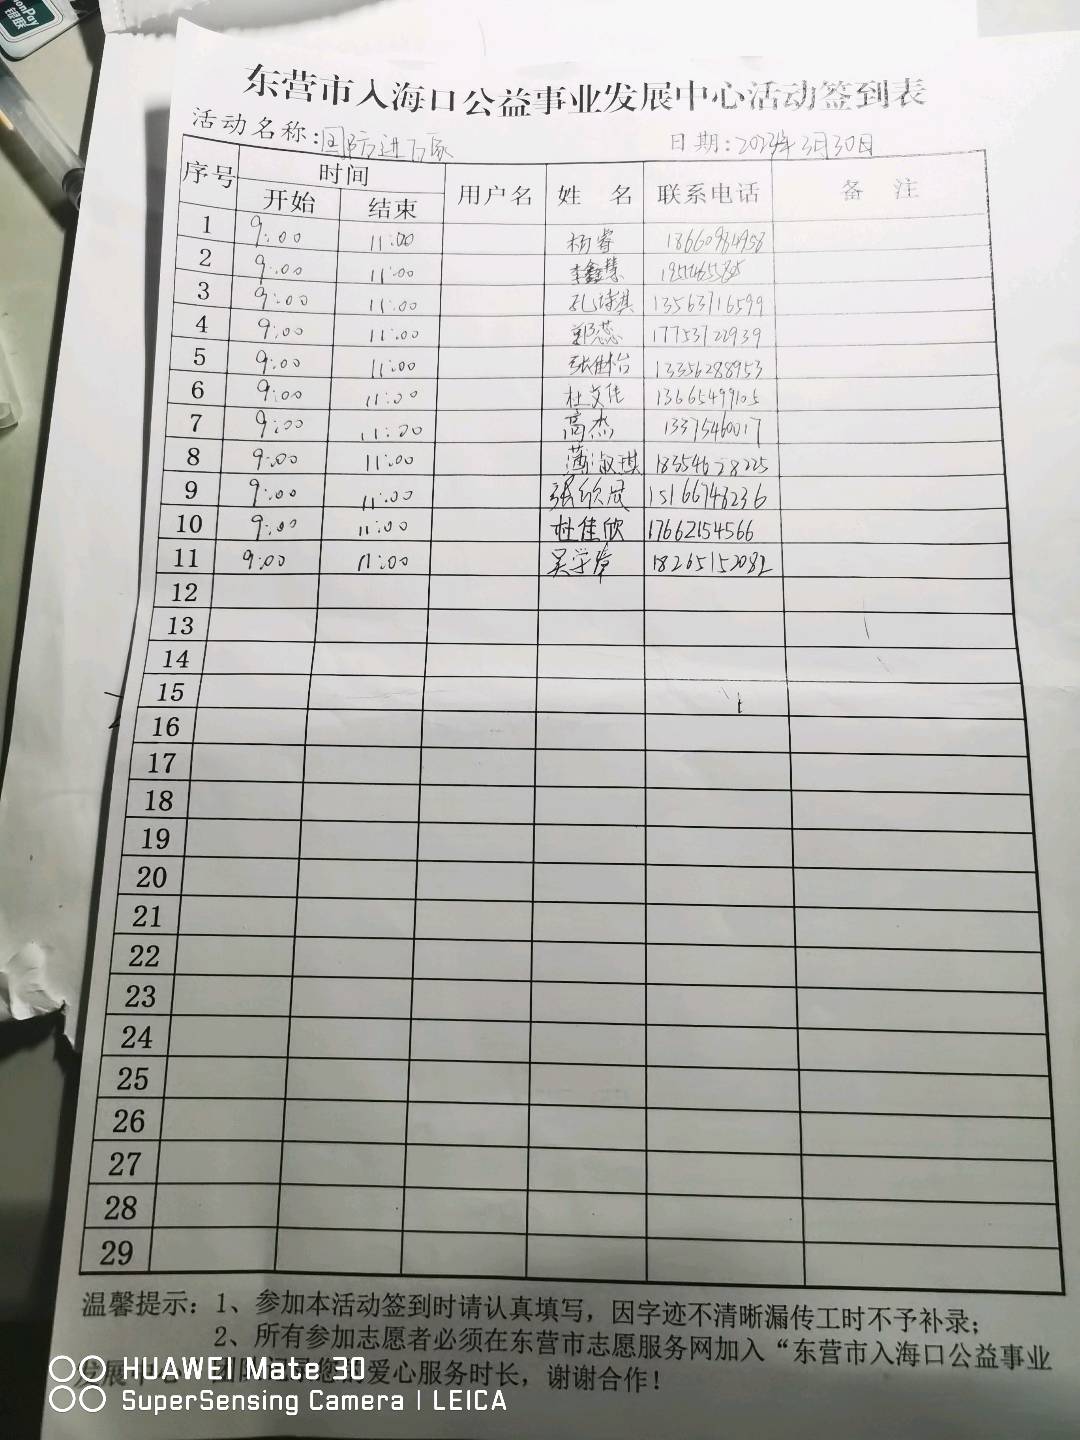 银联
东营市入海口公益事业发展中心活动签到表
活动名称:国防进万家 日期:2023年3月30日
序号 时间 用户名 姓 名 联系电话 备 注
开始 结束
1 9:00 11:00 杨睿
2 9:00 11:00 李鑫慧
3 9:00 11:00 孔诗淇 13563716599
4 9:00 11:00 郭蕊 17753722939
5 9:00 11:00 13356288953
6 9:00 11:00 杜文佳 13665499105
7 9:00 11:00 高杰 13375460017
8 9:00 11:00 薄淑琪 18354628225
9 9:00 11:00 张欣成 15166748236
10 9:00 11:00 杜佳欣 17662154566
11 9:00 11:00 吴学璋 18265152082
12
13
14
15
16
17
18
19
20
21
22
23
24
25
26
27
28
29
温馨提示:1、参加本活动签到时请认真填写，因字迹不清晰漏传工时不予补录；
2、所有参加志愿者必须在东营市志愿服务网加入“东营市入海口公益事业
发展中心 爱心服务时长，谢谢合作！
HUAWEI Mate 30
SuperSensing Camera | LEICA